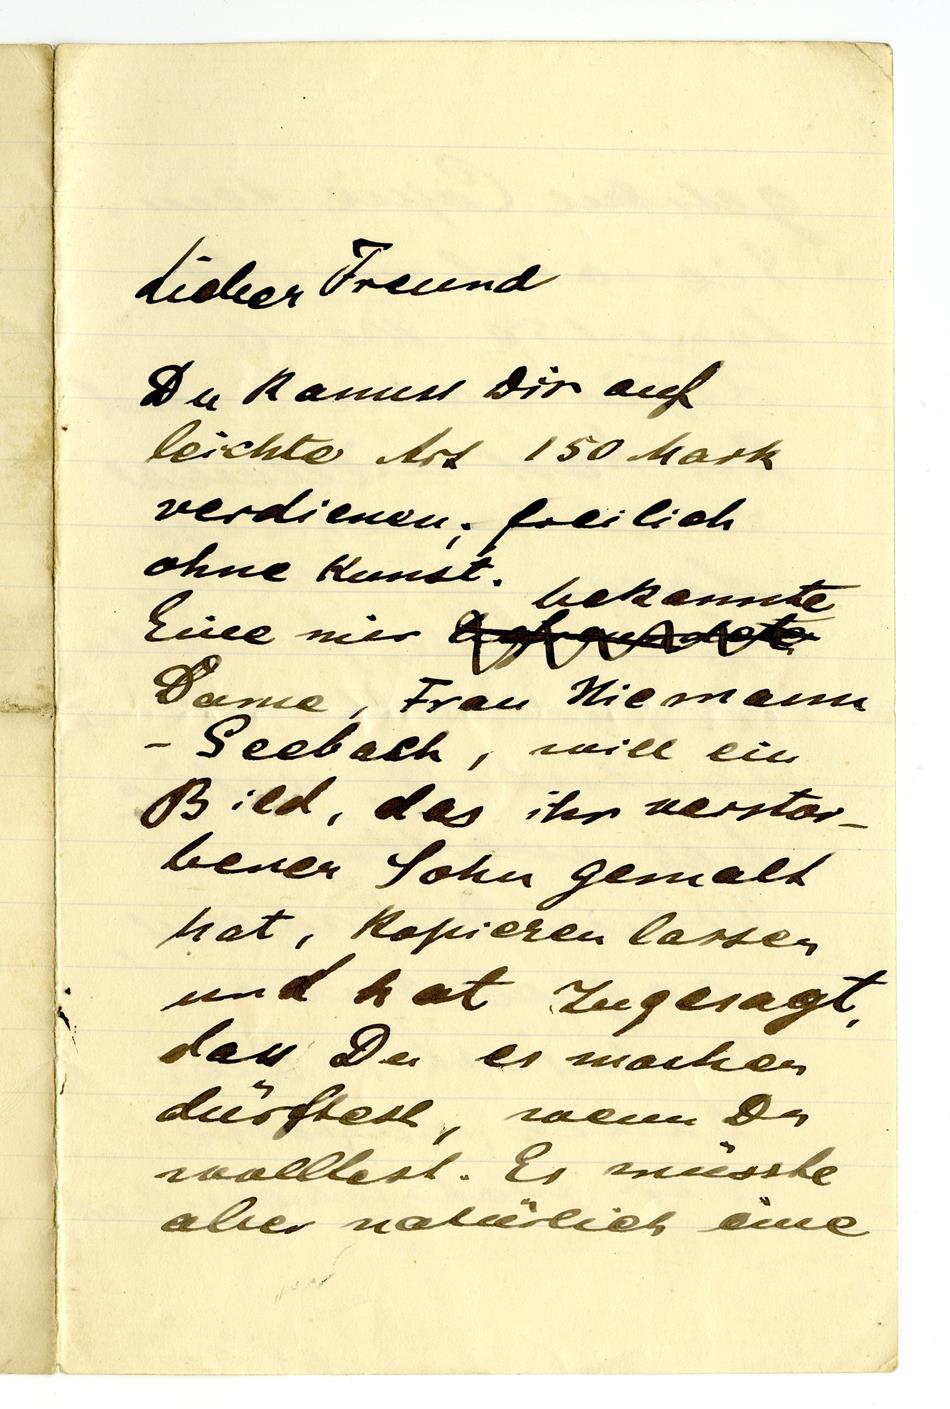 Lieber Freund
Du kannst Dir auf
leichte Art 150 Mark
verdienen; freilich
ohne Kunst.
bekannte
Eine mir befreundete
Dame, Frau Niemann
- Seebach, will ein
Bild, das ihr verstor-
bener Sohn gemalt
hat, kopieren lassen
und hat zugesagt,
dass Du es machen
dürftest, wenn Du
wolltest. Es müsste
aber natürlich eine